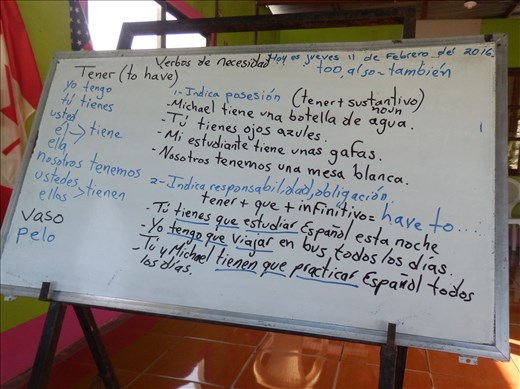 Verbos de necesidad
Hoy es jueves 11 de Febrero del 2016
too, also - también
Tener (to have)
yo tengo
tú tienes
usted
él > tiene
ella
nosotros tenemos
ustedes
ellos > tienen
vaso
pelo
1- Indica posesión (tener + sustantivo)
noun
- Michael tiene una botella de agua.
- Tú tienes ojos azules.
- Mi estudiante tiene unas gafas.
- Nosotros tenemos una mesa blanca.
2- Indica responsabilidad, obligación.
tener + que + infinitivo = have to...
- Tú tienes que estudiar Español esta noche
- Yo tengo que viajar en bus todos los días.
- Tú y Michael tienen que practicar Español todos
los días.